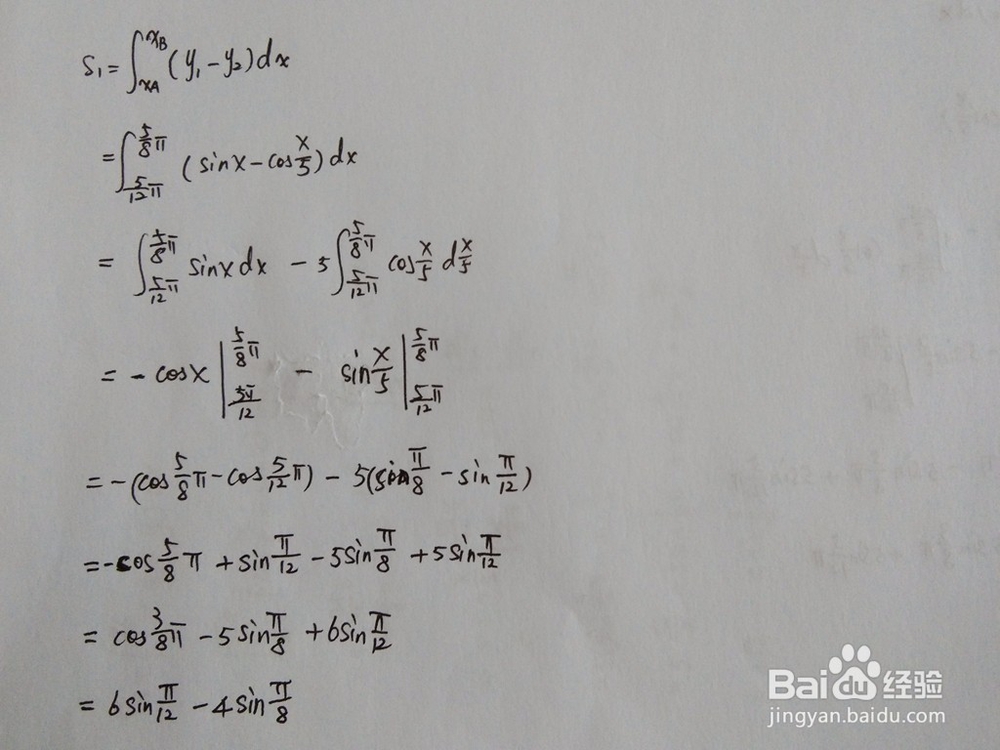 S₁ = ∫_{xA}^{xB} (y₁ - y₂) dx
= ∫_{5/12 π}^{5/8 π} (sin x - cos x/5) dx
= ∫_{5/12 π}^{5/8 π} sin x dx - 5 ∫_{5/12 π}^{5/8 π} cos x/5 d x/5
= - cos x |_{5π/12}^{5/8 π} - sin x/5 |_{5/12 π}^{5/8 π}
= -(cos 5/8 π - cos 5/12 π) - 5(sin π/8 - sin π/12)
= -cos 5/8 π + sin π/12 - 5 sin π/8 + 5 sin π/12
= cos 3/8 π - 5 sin π/8 + 6 sin π/12
= 6 sin π/12 - 4 sin π/8
Baidu 经验
jingyan.baidu.com